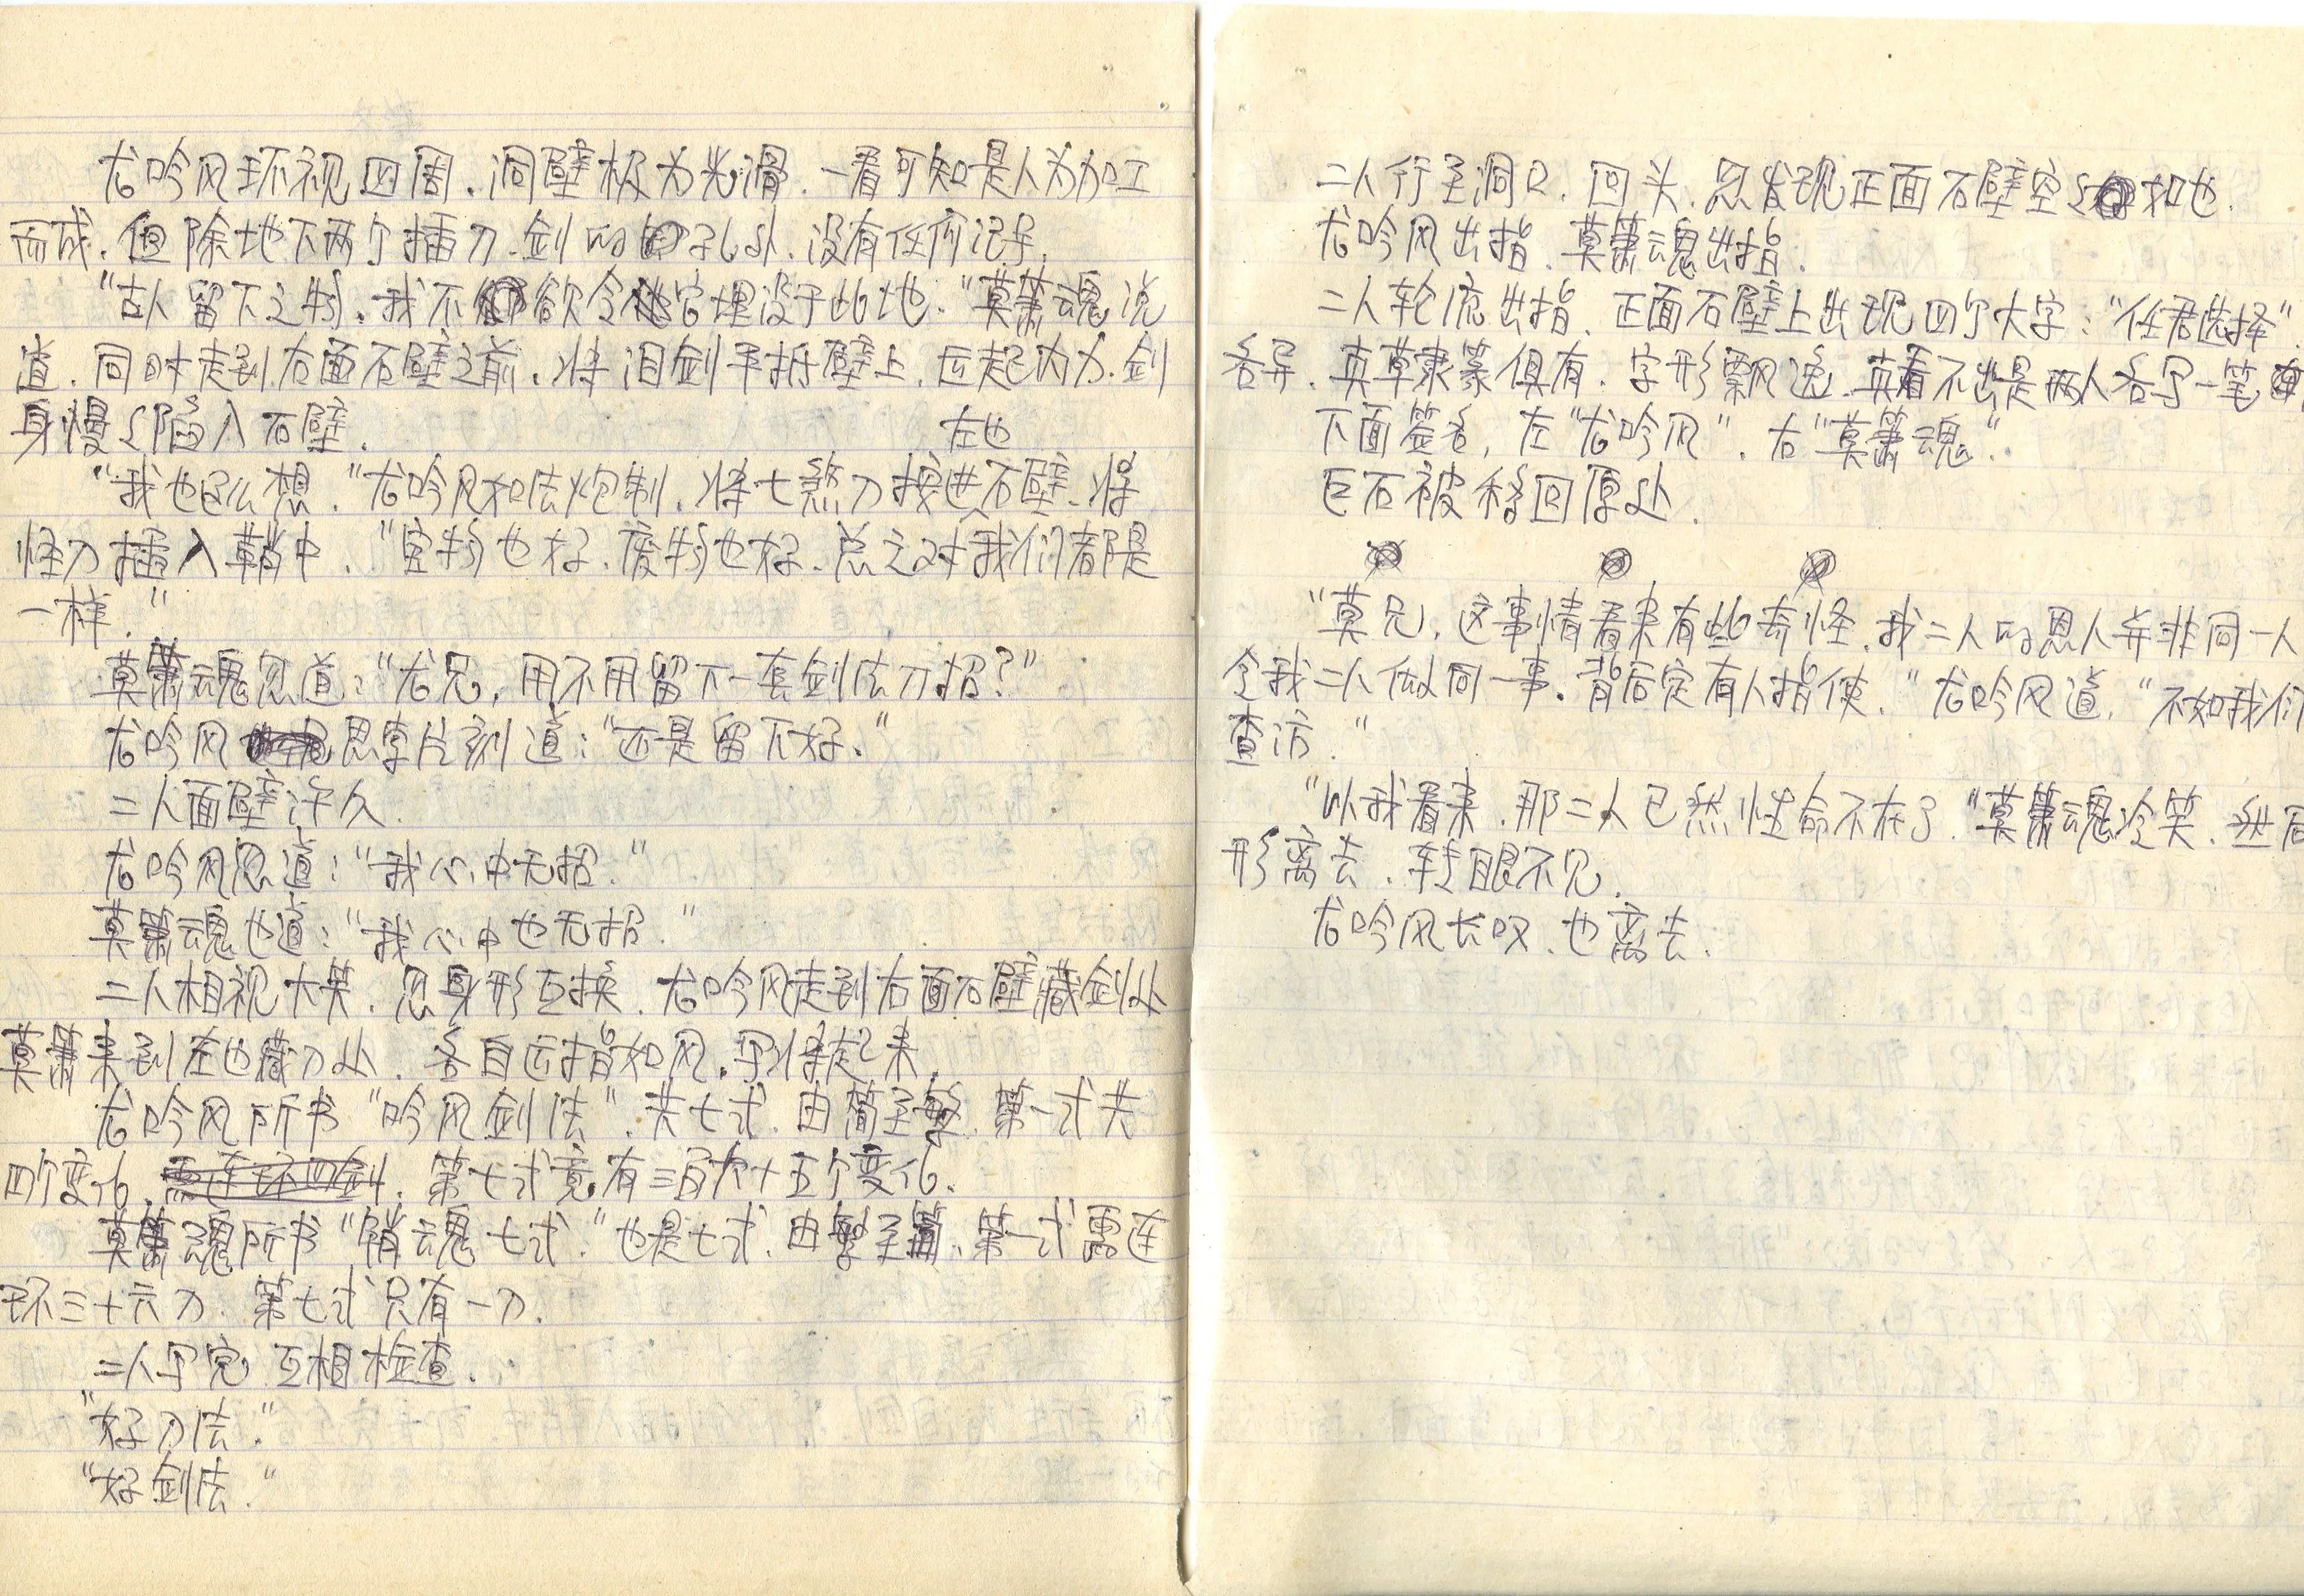 龙吟风环视四周.洞壁极为光滑.一看可知是人为加工
而成.但除地下两个插刀.剑的孔处.没有任何记号.
"古人留下之物.我不欲令它埋没于此地."莫箫魂说
道.同时走到右面石壁之前.将泪剑平抵壁上.运起内力.剑
身慢々陷入石壁.
左也
"我也这么想."龙吟风如法炮制.将七煞刀按进石壁.将
怪刀插入鞘中."宝物也好.废物也好.总之对我们都是
一样."
莫箫魂忽道:"龙兄,用不用留下一套剑法刀招?"
龙吟风思索片刻道:"还是留下好."
二人面壁许久.
龙吟风忽道:"我心中无招."
莫箫魂也道:"我心中也无招."
二人相视大笑.忽身形互换.龙吟风走到右面石壁藏剑处
莫箫来到左也藏刀处.各自运指如风.写将起来.
龙吟风所书"吟风剑法".共七式.由简至繁.第一式共
四个变化.第七式竟有三百六十五个变化.
莫箫魂所书"销魂七式."也是七式.由繁至简.第一式需连
环三十六刀.第七式只有一刀.
二人写完互相检查.
"好刀法."
"好剑法."
二人行至洞口.回头.忽发现正面石壁空々如也.
龙吟风出指.莫箫魂出指.
二人轮流出指.正面石壁上出现四个大字:"任君选择".
各异.真草隶篆俱有.字形飘逸.真看不出是两人各写一笔
下面签名,左"龙吟风".右"莫箫魂".
巨石被移回原处.
"莫兄.这事情看来有些奇怪.我二人的恩人并非同一人
令我二人做同一事.背后定有人指使."龙吟风道."不如我们
查访."
"以我看来.那二人已然性命不在了."莫箫魂冷笑.
形离去.转眼不见.
龙吟风长叹.也离去.